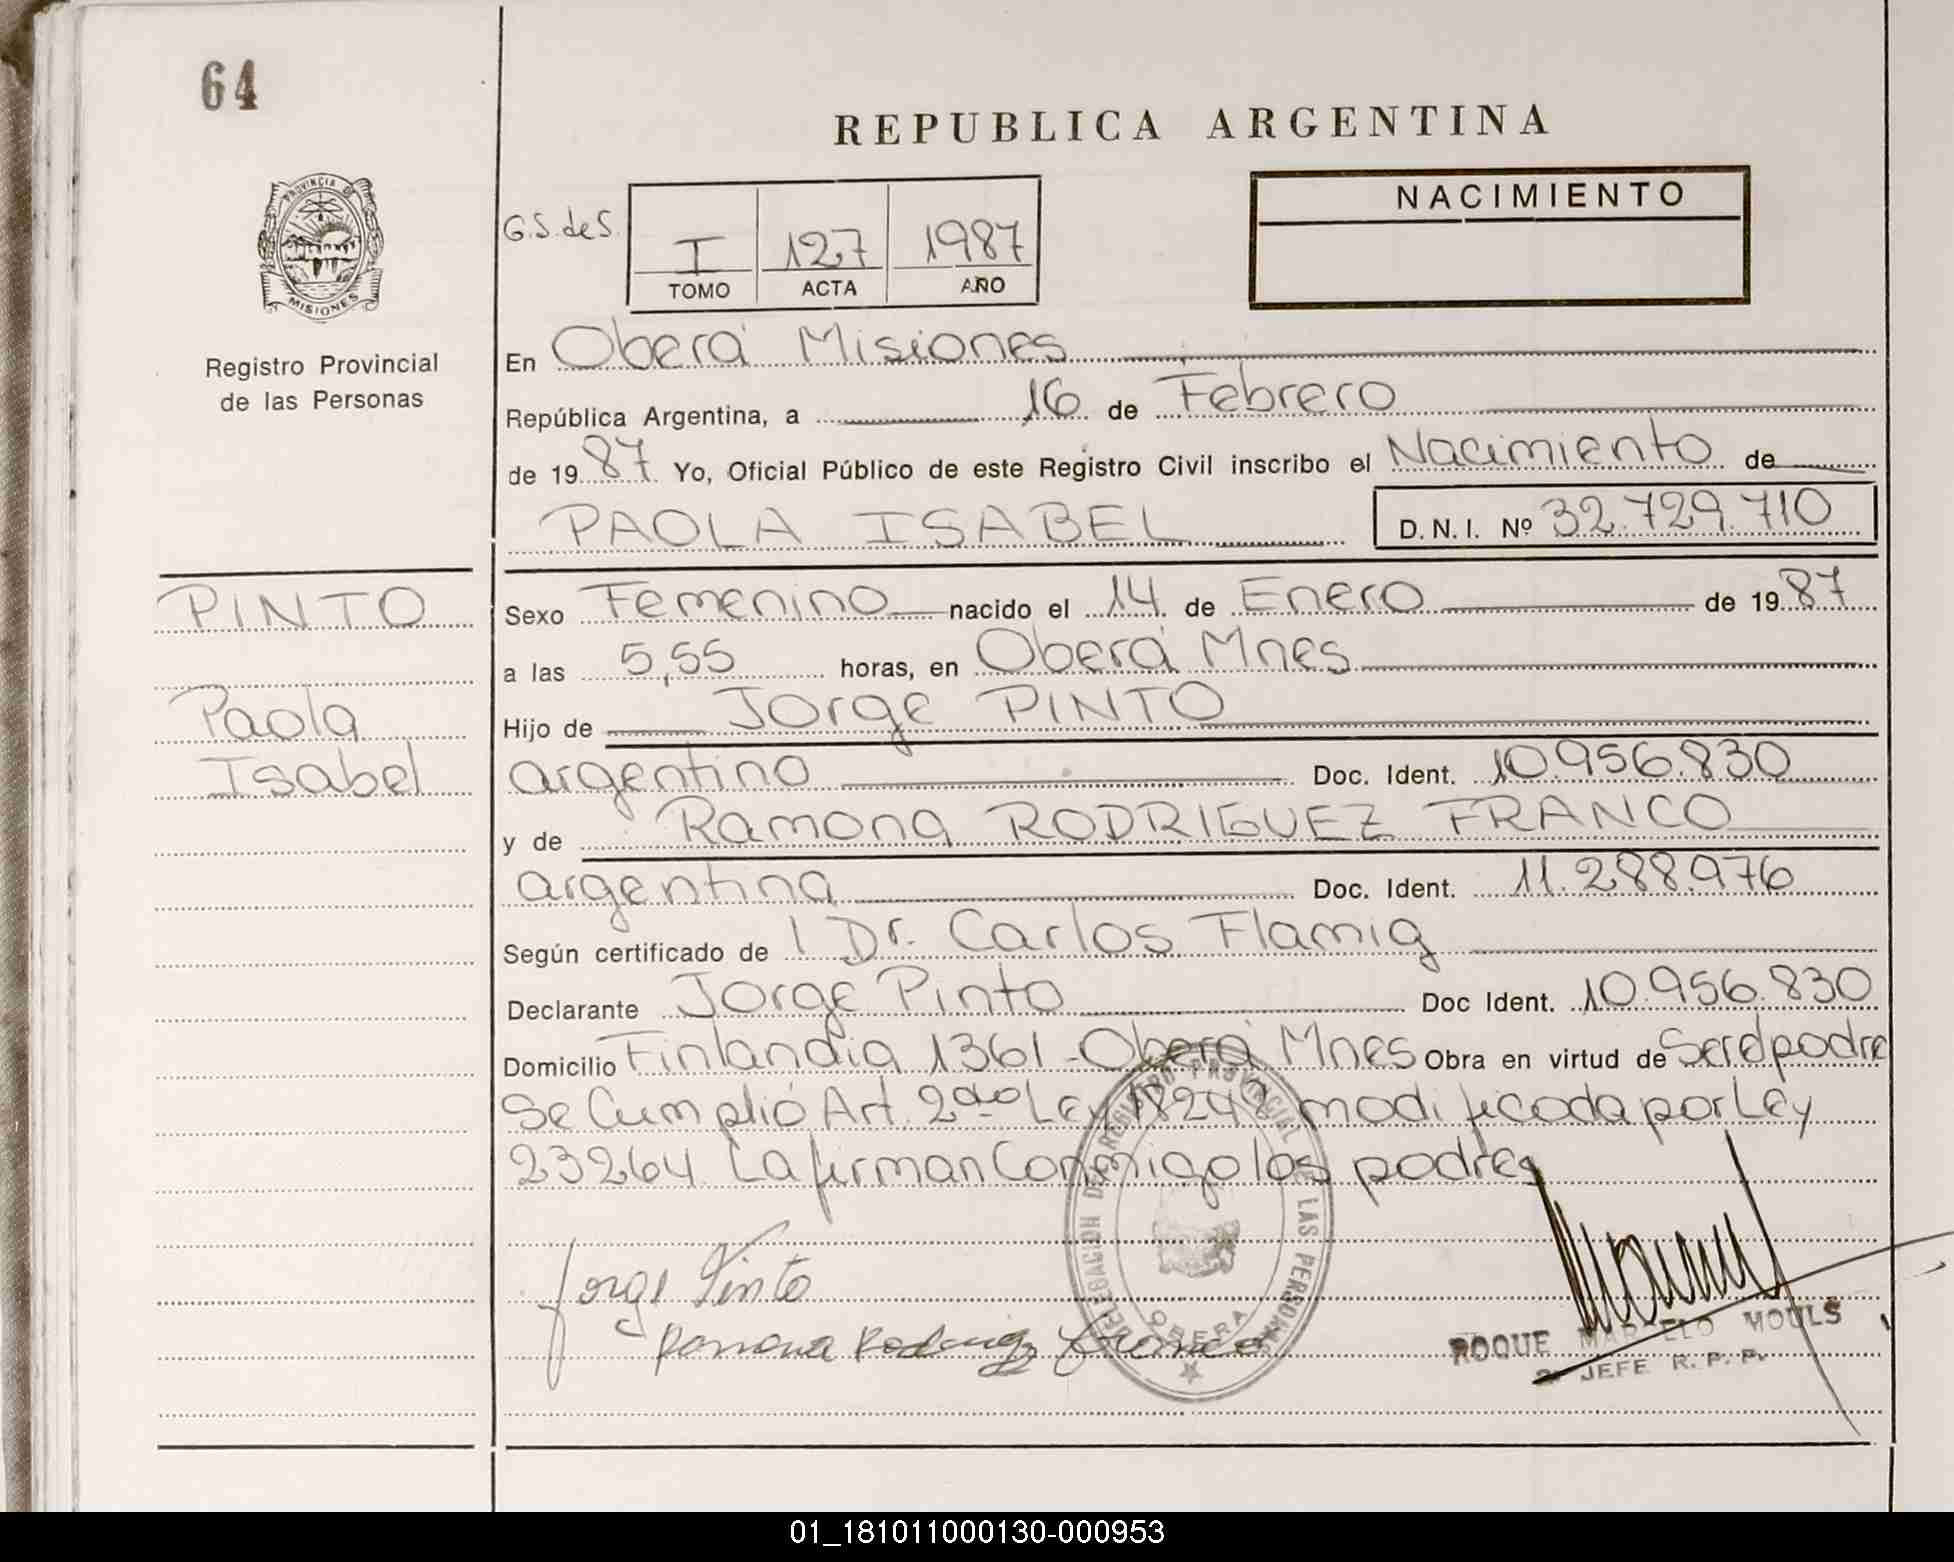 64
REPUBLICA ARGENTINA
PROVINCIA DE
MISIONES
Registro Provincial
de las Personas
G.S. de S.
I 127 1987
TOMO ACTA AÑO
NACIMIENTO
En Oberá Misiones
República Argentina, a 16 de Febrero
de 1987 Yo, Oficial Público de este Registro Civil inscribo el Nacimiento de
PAOLA ISABEL D.N.I. Nº 32.729.710
PINTO
Paola
Isabel
Sexo Femenino nacido el 14 de Enero de 1987
a las 5,55 horas, en Oberá Mnes
Hijo de Jorge PINTO
argentino Doc. Ident. 10.956.830
y de Ramona RODRIGUEZ FRANCO
argentina Doc. Ident. 11.288.976
Según certificado de l Dr. Carlos Flamig
Declarante Jorge Pinto Doc Ident. 10.956.830
Domicilio Finlandia 1361 - Oberá Mnes Obra en virtud de Ser el padre
Se Cumplió Art. 2do Ley 18248 modificada por Ley
23264 La firman Conmigo los padres
DELEGACION DEL REGISTRO PROVINCIAL DE LAS PERSONAS
OBERA
Jorge Pinto
Ramona Rodriguez Franco
ROQUE MARCELO MOULS
2º JEFE R. P. P.
01_181011000130-000953